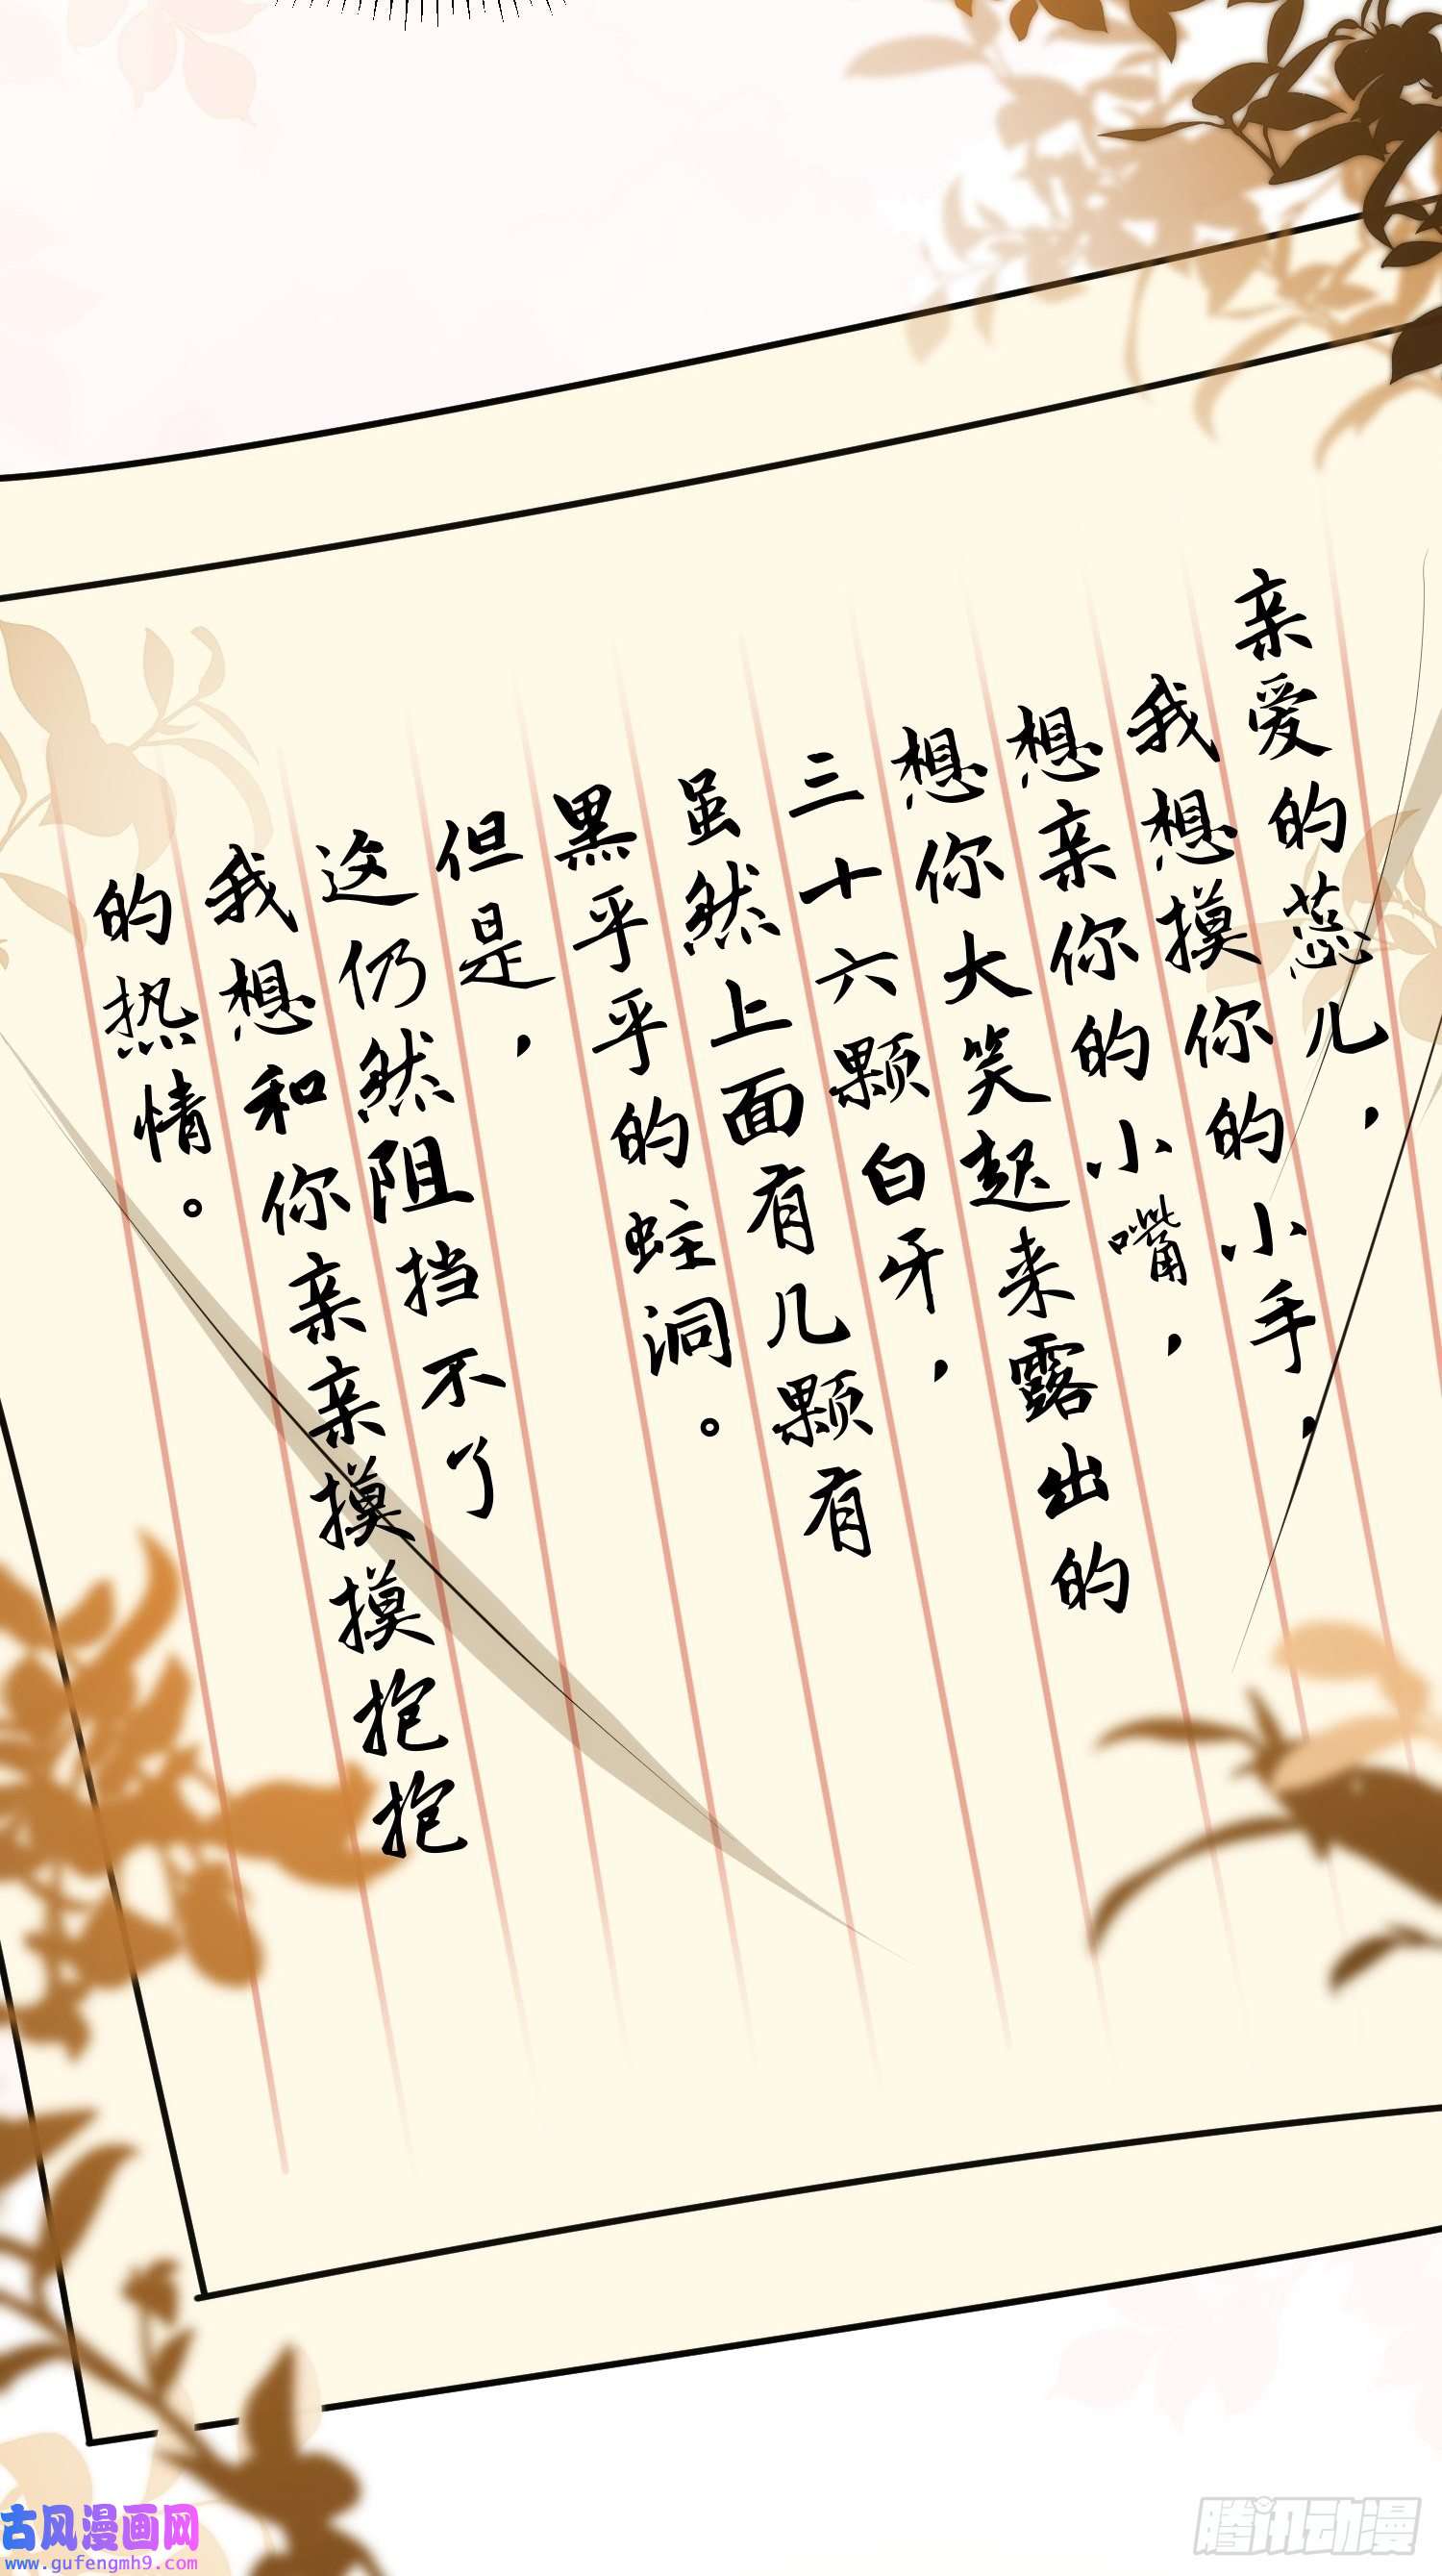 亲爱的蕊儿，
我想摸你的小手，
想亲你的小嘴，
想你大笑起来露出的
三十六颗白牙，
虽然上面有几颗有
黑乎乎的蛀洞。
但是，
这仍然阻挡不了
我想和你亲亲摸摸抱抱
的热情。
古风漫画网
www.gufengmh9.com
腾讯动漫